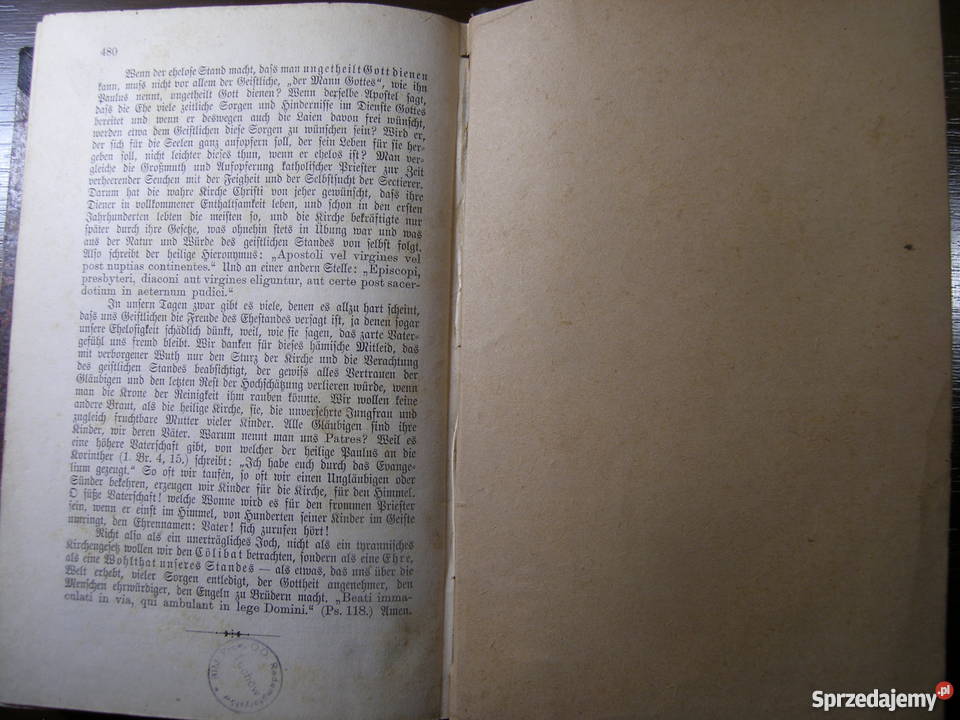 480
Wenn der ehelose Stand macht, daſs man ungetheilt Gott dienen
kann, muſs nicht vor allem der Geiſtliche, „der Mann Gottes“, wie ihn
Paulus nennt, ungetheilt Gott dienen? Wenn derſelbe Apoſtel ſagt,
daſs die Ehe viele zeitliche Sorgen und Hinderniſſe im Dienſte Gottes
bereitet und wenn er deswegen auch die Laien davon frei wünſcht,
werden etwa dem Geiſtlichen dieſe Sorgen zu wünſchen ſein? Wird er,
der ſich für die Seelen ganz aufopfern ſoll, der ſein Leben für ſie her-
geben ſoll, nicht leichter dieſes thun, wenn er ehelos iſt? Man ver-
gleiche die Großmuth und Aufopferung katholiſcher Prieſter zur Zeit
verheerender Seuchen mit der Feigheit und der Selbſtſucht der Sectierer.
Darum hat die wahre Kirche Chriſti von jeher gewünſcht, daſs ihre
Diener in vollkommener Enthaltſamkeit leben, und ſchon in den erſten
Jahrhunderten lebten die meiſten ſo, und die Kirche bekräftigte nur
ſpäter durch ihre Geſetze, was ohnehin ſtets in Übung war und was
aus der Natur und Würde des geiſtlichen Standes von ſelbſt folgt.
Alſo ſchreibt der heilige Hieronymus: „Apostoli vel virgines vel
post nuptias continentes.“ Und an einer andern Stelle: „Episcopi,
presbyteri, diaconi aut virgines eliguntur, aut certe post sacer-
dotium in aeternum pudici.“
In unſern Tagen zwar gibt es viele, denen es allzu hart ſcheint,
daſs uns Geiſtlichen die Freude des Eheſtandes verſagt iſt, ja denen ſogar
unſere Eheloſigkeit ſchädlich dünkt, weil, wie ſie ſagen, das zarte Vater-
gefühl uns fremd bleibt. Wir danken für dieſes hämiſche Mitleid, das
mit verborgener Wuth nur den Sturz der Kirche und die Verachtung
des geiſtlichen Standes beabſichtigt, der gewiſs alles Vertrauen der
Gläubigen und den letzten Reſt der Hochſchätzung verlieren würde, wenn
man die Krone der Reinigkeit ihm rauben könnte. Wir wollen keine
andere Braut, als die heilige Kirche, ſie, die unverſehrte Jungfrau und
zugleich fruchtbare Mutter vieler Kinder. Alle Gläubigen ſind ihre
Kinder, wir deren Väter. Warum nennt man uns Patres? Weil es
eine höhere Vaterſchaft gibt, von welcher der heilige Paulus an die
Korinther (1. Br. 4, 15.) ſchreibt: „Ich habe euch durch das Evange-
lium gezeugt.“ So oft wir taufen, ſo oft wir einen Ungläubigen oder
Sünder bekehren, erzeugen wir Kinder für die Kirche, für den Himmel.
O ſüße Vaterſchaft! welche Wonne wird es für den frommen Prieſter
ſein, wenn er einſt im Himmel, von Hunderten ſeiner Kinder im Geiſte
umringt, den Ehrennamen: Vater! ſich zurufen hört!
Nicht alſo als ein unerträgliches Joch, nicht als ein tyranniſches
Kirchengeſetz wollen wir den Cölibat betrachten, ſondern als eine Ehre,
als eine Wohlthat unſeres Standes — als etwas, das uns über die
Welt erhebt, vieler Sorgen entledigt, der Gottheit angenehmer, den
Menſchen ehrwürdiger, den Engeln zu Brüdern macht. „Beati imma-
culati in via, qui ambulant in lege Domini.“ (Ps. 118.) Amen.
Tuchów
Sprzedajemy.pl